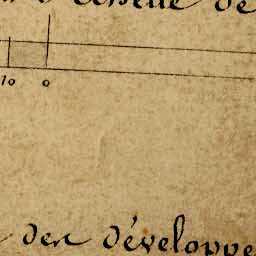 Echelle de
10 0
des développe